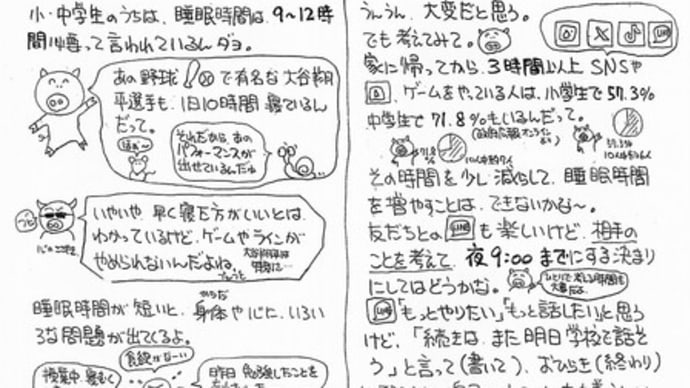 小・中学生のうちは、睡眠時間は、9〜12時
間必要って言われているんダヨ。
あの野球で有名な大谷翔
平選手も、1日10時間寝ているん
だって。
それだから、あの
パフォーマンスが
出せているんだね
いやいや、早く寝た方がいいとは、
わかっているけど、ゲームやラインが
やめられないんだよね。
睡眠時間が短いと、身体や心に、いろい
からだ
ろな問題が出てくるよ。
食欲がな〜い
授業中、寝むく
昨日勉強したことを
うんうん、大変だと思う。
でも考えてみて。
LINE
家に帰ってから、3時間以上SNSや
、ゲームをやっている人は、小学生で57.3%
中学生で71.8%もいるんだって。
(政府広報オンラインより)
71.8%
10人中約7人
57.3%
10人中約6人
その時間を少し減らして、睡眠時間
を増やすことは、できないかな〜。
友だちとのLINEも楽しいけど、相手の
ことを考えて、夜9:00までにする決まり
にしてはどうかな。
ひとりで考える時間も
大事だよ。
LINE「もっとやりたい」「もっと話したい」と思う
けど、「続きは、また明日学校で話そ
う」と言って(書いて)、おひらき(終わり)